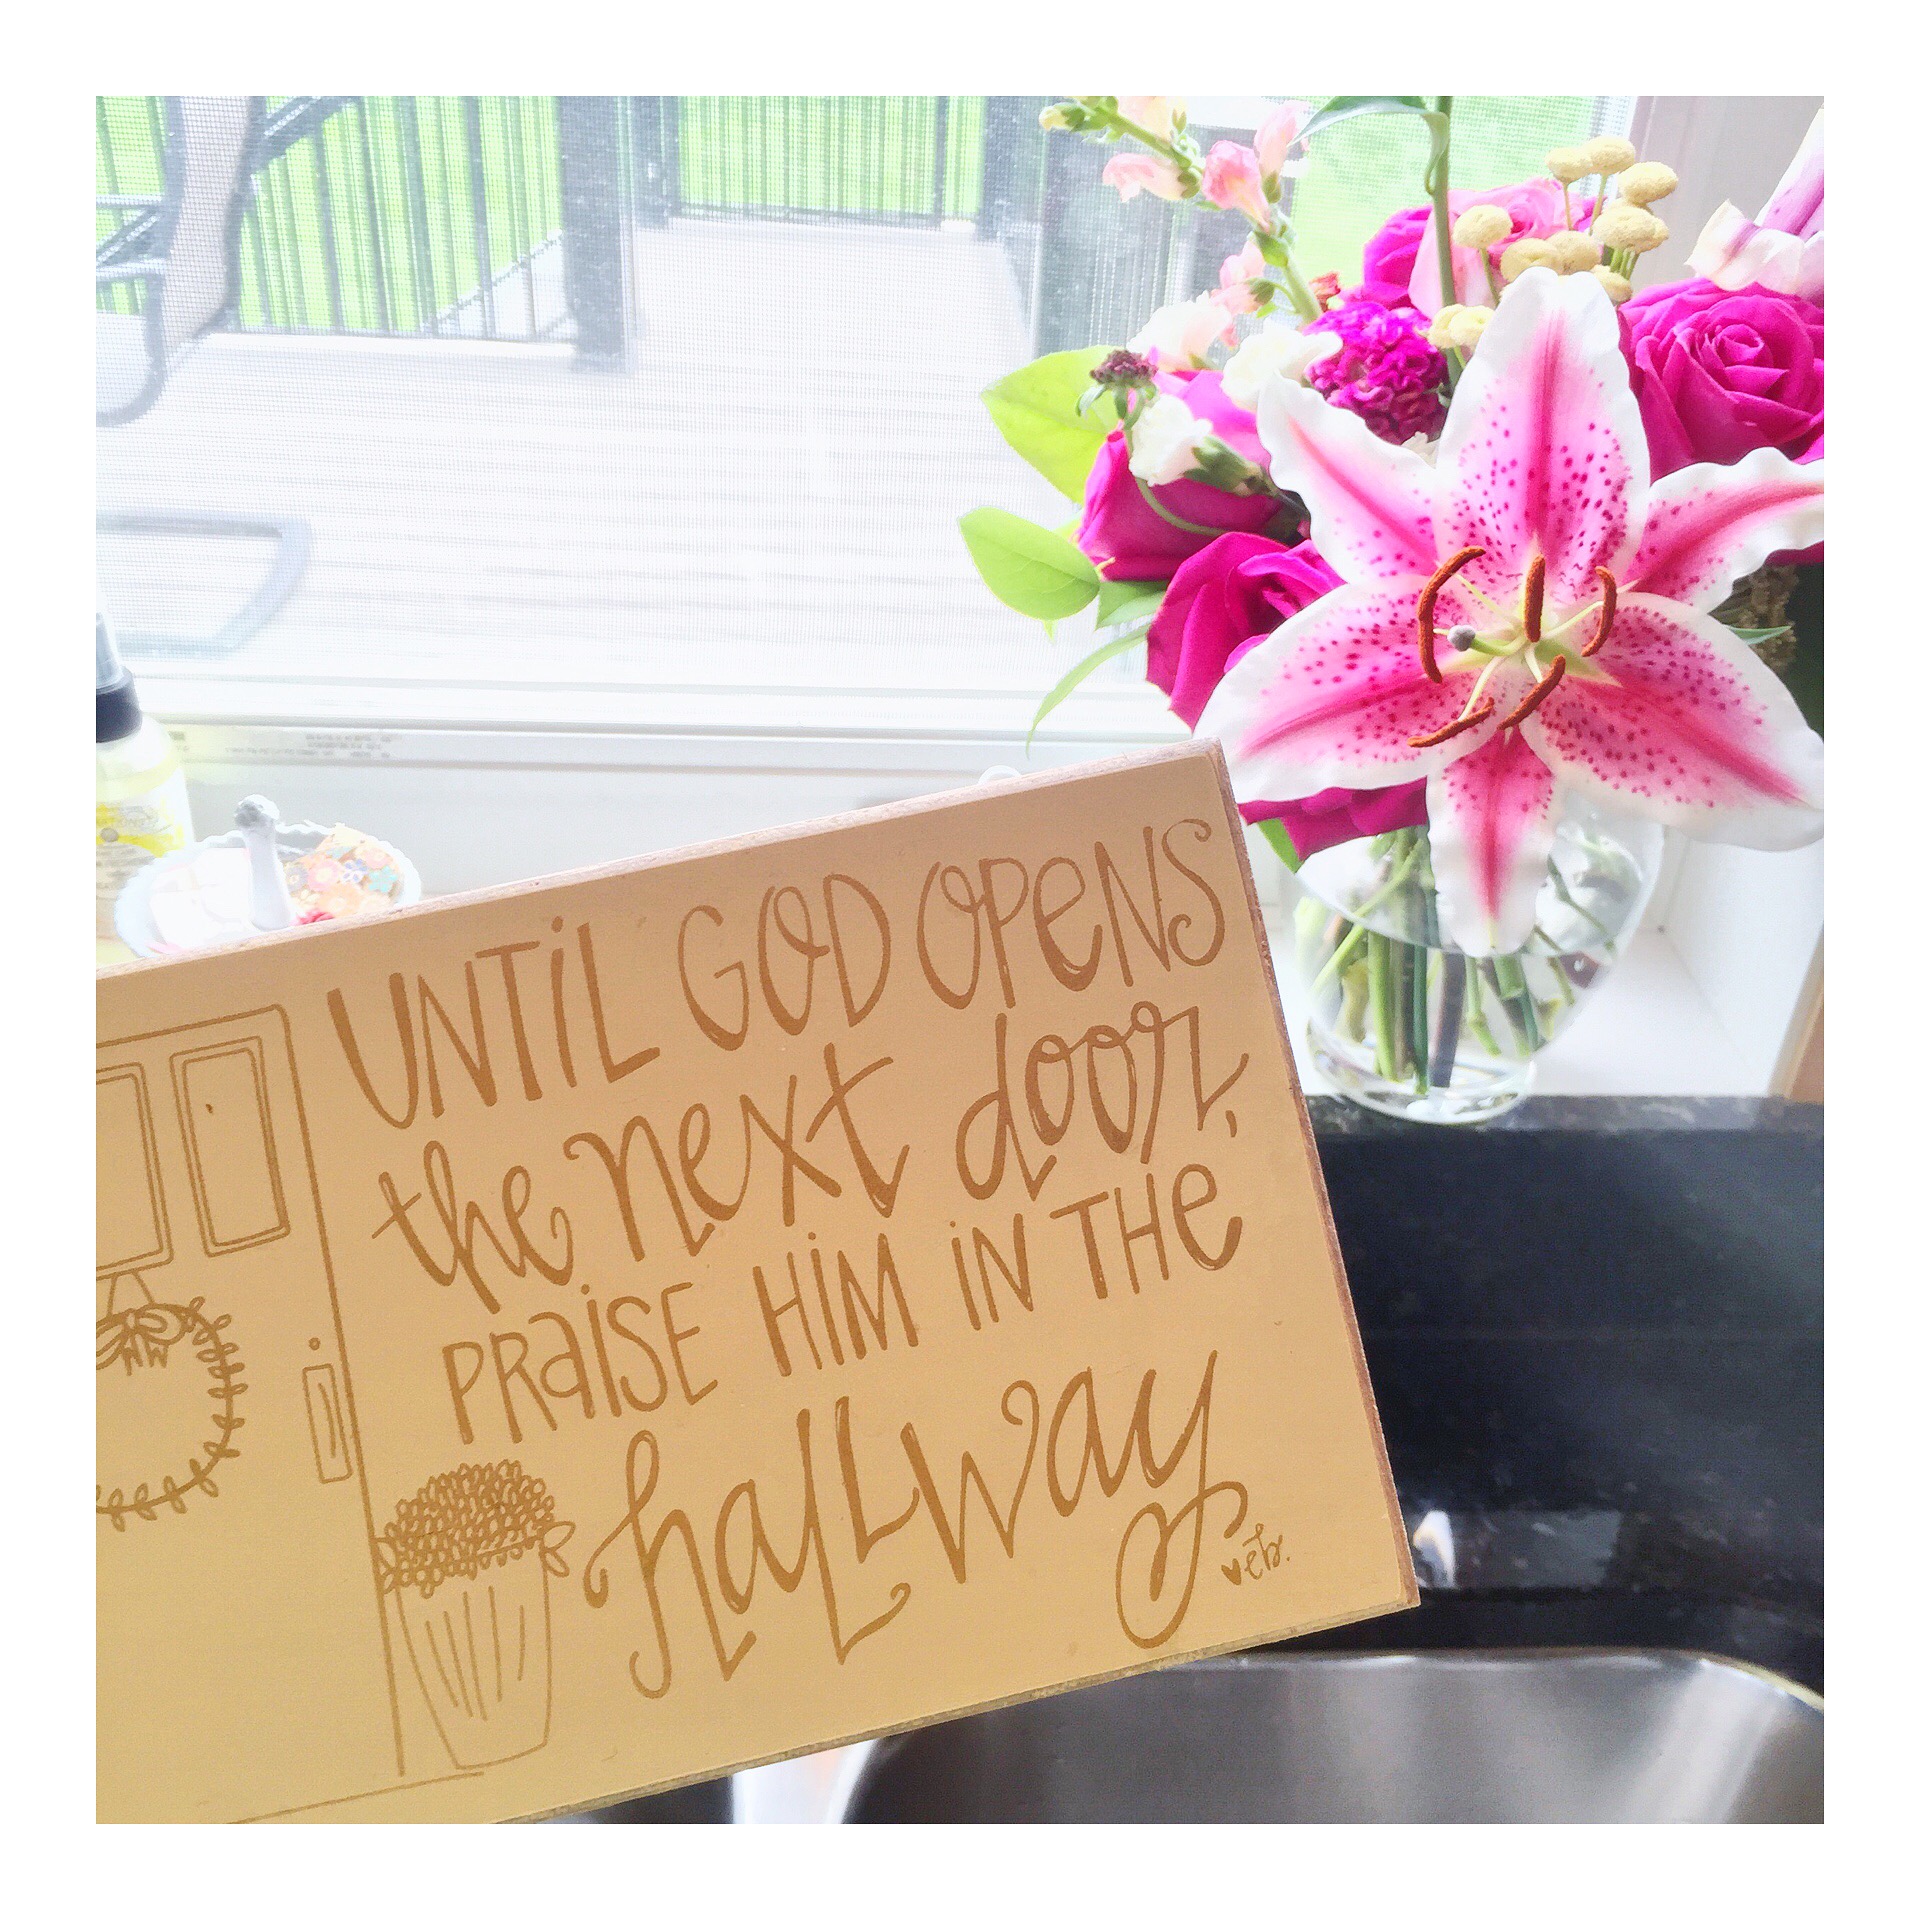 UNTiL GOD OPeNS
the next door,
PRaiSE HiM iN THe
haLLway
♥ eb.